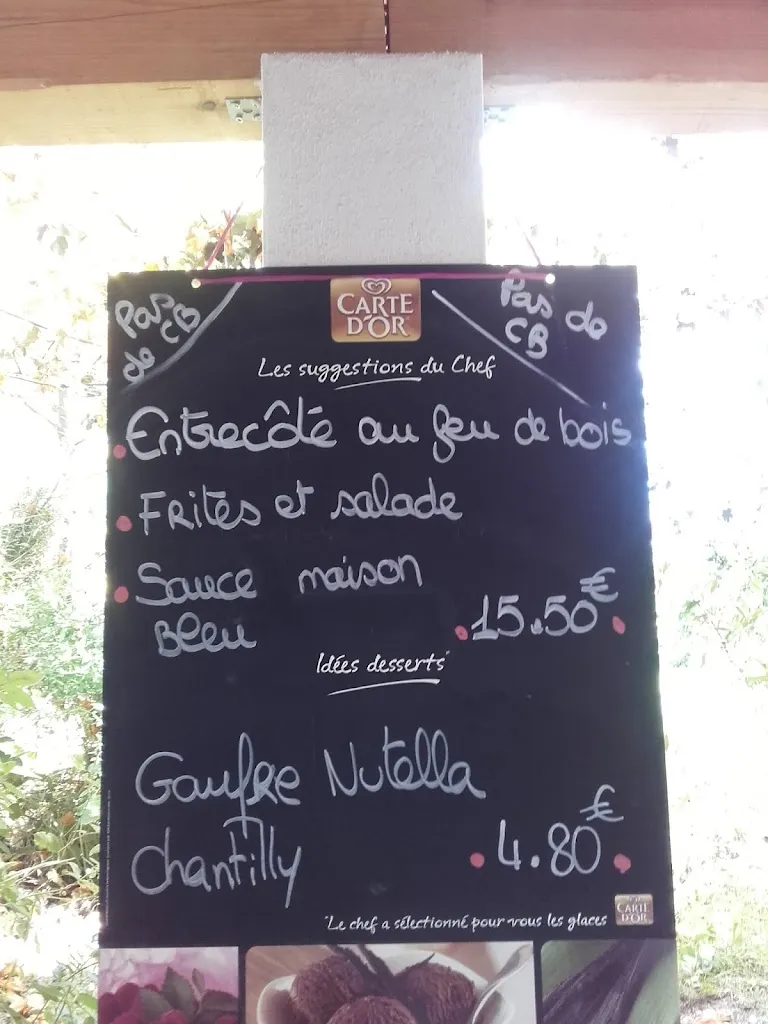 Pas
de CB
CARTE
D'OR
Pas de
CB
Les suggestions du Chef
Entrecôte au feu de bois
Frites et salade
Sauce maison
Bleu
15.50€
Idées desserts*
Gaufre Nutella
Chantilly
4.80€
*Le chef a sélectionné pour vous les glaces
CARTE
D'OR